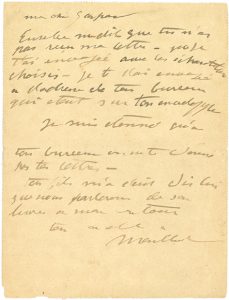 mon cher Gaspar
Eusebe me dit que tu n'as
pas reçu ma lettre - je
t'ai envoyé avec les echantillons
choisis - je te l'ai envoyé
a l'adresse de ton bureau
qui etait sur ton enveloppe
Je suis etonné qu'a
ton bureau on ne te donne
pas tes lettres -
ton fils m'a ecrit dis lui
que nous parlerons de son
livre a mon retour
ton
Maillol